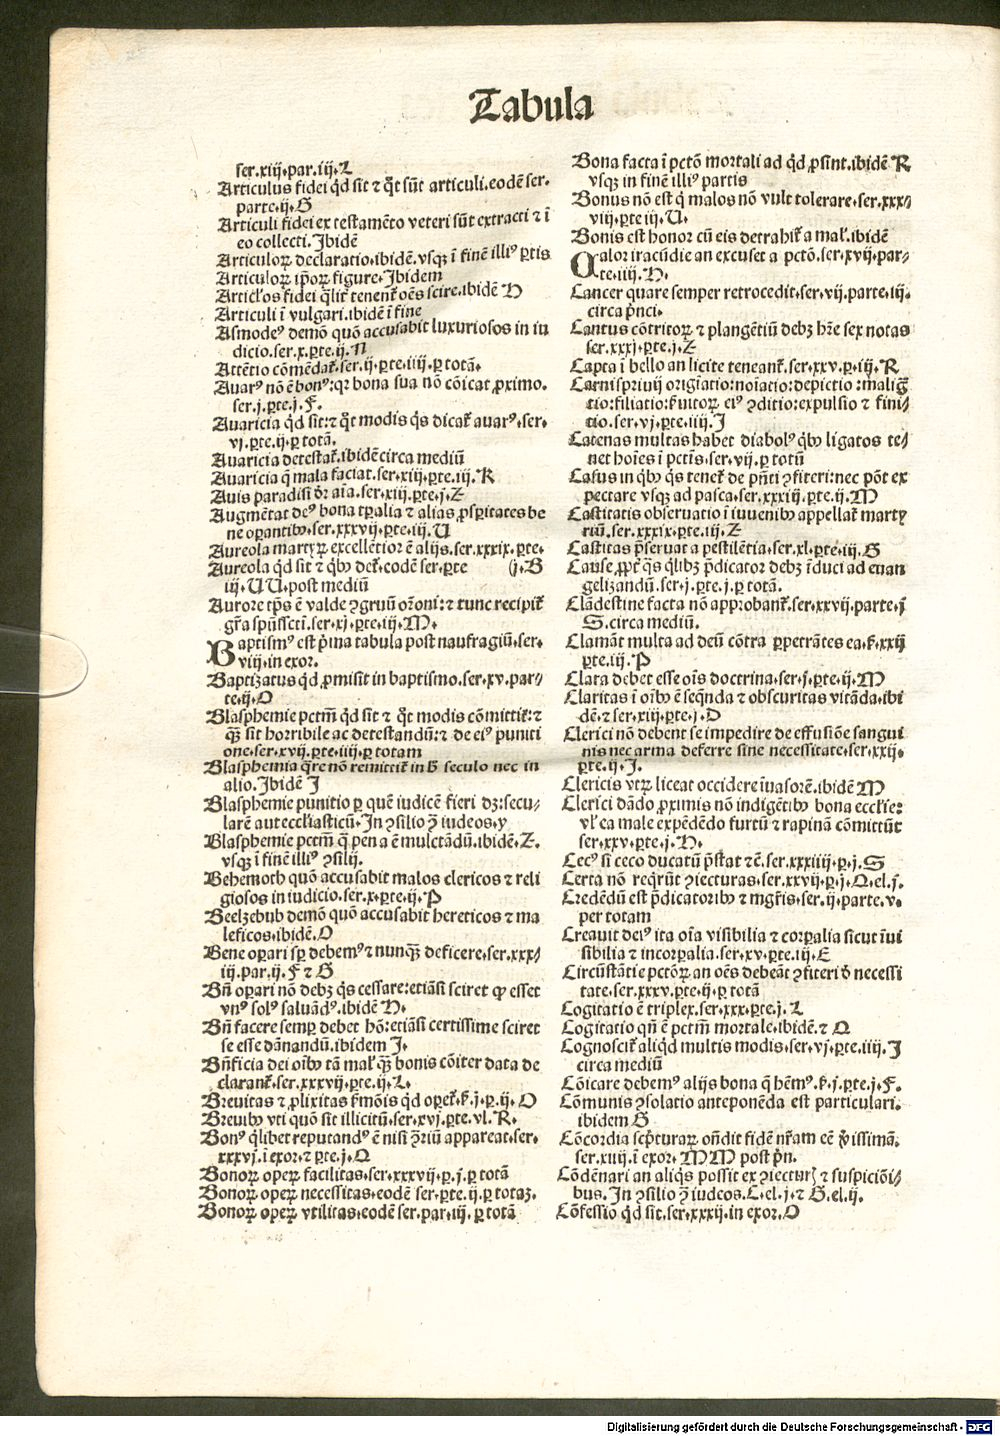 Tabula
ser.xiij.par.iij.L
Articulus fidei qͥd sit ⁊ qͦt sūt articuli.eodē ser.
parte.ij.G
Articuli fidei ex testamēto veteri sūt extracti ⁊ ī
eo collecti.Ibidē
Articuloꝝ declaratio.ibidē.vsqꝫ ī finē illiꝰ ꝑtis
Articuloꝝ ip̄oꝝ figure.Ibidem
Articl̓os fidei q̄lit̄ tenent̄ oēs scire.ibidē H
Articuli ī vulgari.ibidē ī fine
Asmodeꝰ demō quō accusabit luxuriosos in iu
dicio.ser.x.ꝑte.ij.N
Attētio cōmēdat̄.ser.ij.ꝑte.iiij.ꝑ totā.
Auarꝰ nō ē bonꝰ:qꝛ bona sua nō cōicat ꝓximo.
ser.j.ꝑte.j.F.
Auaricia qͥd sit:⁊ qͦt modis qͥs dicat̄ auarꝰ.ser.
vj.ꝑte.ij.ꝑ totā.
Auaricia detestat̄.ibidē circa mediū
Auaricia q̄ mala faciat.ser.xiij.ꝑte.iij.K
Auis paradisi dr̄ aīa.ser.xiij.ꝑte.j.Z
Augmētat deꝰ bona tꝑalia ⁊ alias ꝓsꝑitates be
ne oꝑantibꝰ.ser.xxxvij.ꝑte.iij.U
Aureola martyꝝ excellētior ē alijs.ser.xxxix.ꝑte.
Aureola qͥd sit ⁊ qͥbꝰ det̄.eodē ser.ꝑte (j.B
iij.UU.post mediū
Aurore tp̄s ē valde ꝯgruū or̄oni:⁊ tunc recipit̄
gr̄a sp̄ūscti.ser.xj.ꝑte.iij.M.
Baptismꝰ est p̄ina tabula post naufragiū.ser.
viij.in exor.
Baptizatus qͥd ꝓmisit in baptismo.ser.xv.par⸗
te.ij.O
Blasphemie pctm̄ qͥd sit ⁊ qͦt modis cōmittit̄:⁊
qꝫ̄ sit horribile ac detestandū:⁊ de eiꝰ puniti
one.ser.xvij.ꝑte.iiij.ꝑ totam
Blasphemia q̄re nō remittit̄ in h̄ seculo nec in
alio.Ibidē I
Blasphemie punitio ꝑ quē iudicē fieri dꝫ:secu⸗
larē aut eccl̓iasticū.In ꝯsilio ꝯ̄ iudeos.y
Blasphemie pctm̄ q̄ pena ē mulctādū.ibidē.Z.
vsqꝫ ī finē illiꝰ ꝯsilij.
Behemoth quō accusabit malos clericos ⁊ reli
giosos in iudicio.ser.x.ꝑte.ij.P
Beelzebub demō quō accusabit hereticos ⁊ ma
leficos.ibidē.O
Bene oꝑari sꝑ debemꝰ ⁊ nunqꝫ̄ deficere.ser.xxx⸗
iij.par.ij.F ⁊ G
Bn̄ oꝑari nō debꝫ qͥs cessare:etiāsi sciret ꝙ esset
vnꝰ solꝰ saluādꝰ.ibidē H.
Bn̄ facere semꝑ debet hō:etiāsi certissime sciret
se esse dānandū.ibidem I.
Bn̄ficia dei oībꝰ tā mal̓ qꝫ̄ bonis cōiter data de
clarant̄.ser.xxxvij.ꝑte.ij.L.
Breuitas ⁊ ꝓlixitas s̄mōis qͥd oꝑet̄.s̄.j.ꝑ.ij.O
Breuibꝰ vti quō sit illicitū.ser.xvj.ꝑte.vl.R.
Bonꝰ qͥlibet reputandꝰ ē nisi ꝯ̄riū appareat.ser.
xxxvj.ī exor.⁊ ꝑte.j.Q
Bonoꝝ opeꝝ facilitas.ser.xxxvij.ꝑ.j.ꝑ totā
Bonoꝝ opeꝝ necessitas.eodē ser.ꝑte.ij.ꝑ totaꝫ.
Bonoꝝ opeꝝ vtilitas.eodē ser.par.iij.ꝑ totā
Bona facta ī pctō mortali ad qͥd ꝓsint.ibidē K
vsqꝫ in finē illiꝰ partis
Bonus nō est qͥ malos nō vult tolerare.ser.xxx⸗
viij.ꝑte iij.U.
Bonis est honor cū eis detrahit̄ a mal̓.ibidē
Calor iracūdie an excuset a pctō.ser.xvij.par⸗
te.iiij.H.
Cancer quare semper retrocedit.ser.vij.parte.iij.
circa p̄nci.
Cantus cōtritoꝝ ⁊ plangētiū debꝫ hr̄e sex notas
ser.xxxj.ꝑte.j.Z
Capta ī bello an licite teneant̄.ser.xxv.ꝑ.iij.K
Carnispriuij origīatio:noīatio:depictio:maliḡ
tio:filiatio:s̄uitoꝝ eiꝰ ꝯditio:expulsio ⁊ fini⸗
tio.ser.vj.ꝑte.iiij.I
Catenas multas habet diabolꝰ qͥbꝰ ligatos te⸗
net hoīes ī pctīs.ser.vij.ꝑ totū
Casus in qͥbꝰ qͥs tenet̄ de p̄nti ꝯfiteri:nec pōt ex
pectare vsqꝫ ad pasca.ser.xxxiij.ꝑte.ij.M
Castitatis obseruatio ī iuuenibꝰ appellat̄ marty
riū.ser.xxxix.ꝑte.iij.Z
Castitas p̄seruat a pestilētia.ser.xl.ꝑte.iij.G
Cause ꝓpt̄ qͣs qͥlibꝫ p̄dicator debꝫ īduci ad euan
gelizandū.ser.j.ꝑte.j.ꝑ totā.
Clādestine facta nō approbant̄.ser.xxvij.parte.j
S.circa mediū.
Clamāt multa ad deū cōtra ꝑpetrātes ea.s̄.xxij
ꝑte.iij.P
Clara debet esse oīs doctrina.ser.j.ꝑte.ij.M
Claritas ī oībꝰ ē seqnda ⁊ obscuritas vitāda.ibi
dē.⁊ ser.xiij.ꝑte.j.D
Clerici nō debent se impedire de effusiōe sangui
nis nec arma deferre sine necessitate.ser.xxij.
ꝑte.ij.I.
Clericis vtꝝ liceat occidere īuasorē.ibidē M
Clerici dādo ꝓximis nō indigētibꝰ bona eccl̓ie:
vl̓ ea male expēdēdo furtū ⁊ rapinā cōmittūt
ser.xxv.ꝑte.j.H.
Cecꝰ si ceco ducatū p̄stat ⁊c̄.ser.xxxiiij.ꝑ.j.S
Certa nō reqͥrūt ꝯiecturas.ser.xxvij.ꝑ.j.Q.el.j.
Credēdū est p̄dicatoribꝰ ⁊ mgr̄is.ser.ij.parte.v.
per totam
Creauit deiꝰ ita oīa visibilia ⁊ corꝑalia sicut īui
sibilia ⁊ incorꝑalia.ser.xv.ꝑte.iij.E
Circūstātie pctōꝝ an oēs debeāt ꝯfiteri d̄ necessi
tate.ser.xxxv.ꝑte.ij.ꝑ totā
Cogitatio ē triplex.ser.xxx.ꝑte.j.L
Cogitatio qn̄ ē pctm̄ mortale.ibidē.⁊ Q
Cognoscit̄ aliqͥd multis modis.ser.vj.ꝑte.iiij.I
circa mediū
Cōicare debemꝰ alijs bona q̄ hēmꝰ.s̄.j.ꝑte.j.F.
Cōmunis ꝯsolatio anteponēda est particulari.
ibidem G
Cōcordia scp̄turaꝝ oñdit fidē nr̄am eē v̄issimā.
ser.xiiij.ī exor.MM post p̄n.
Cōdēnari an aliqͥs possit ex ꝯiecturꝭ ⁊ suspiciōi⸗
bus.In ꝯsilio ꝯ̄ iudeos.C.el.j.⁊ G.el.ij.
Cōfessio qͥd sit.ser.xxxij.in exor.O
Digitalisierung gefördert durch die Deutsche Forschungsgemeinschaft - DFG